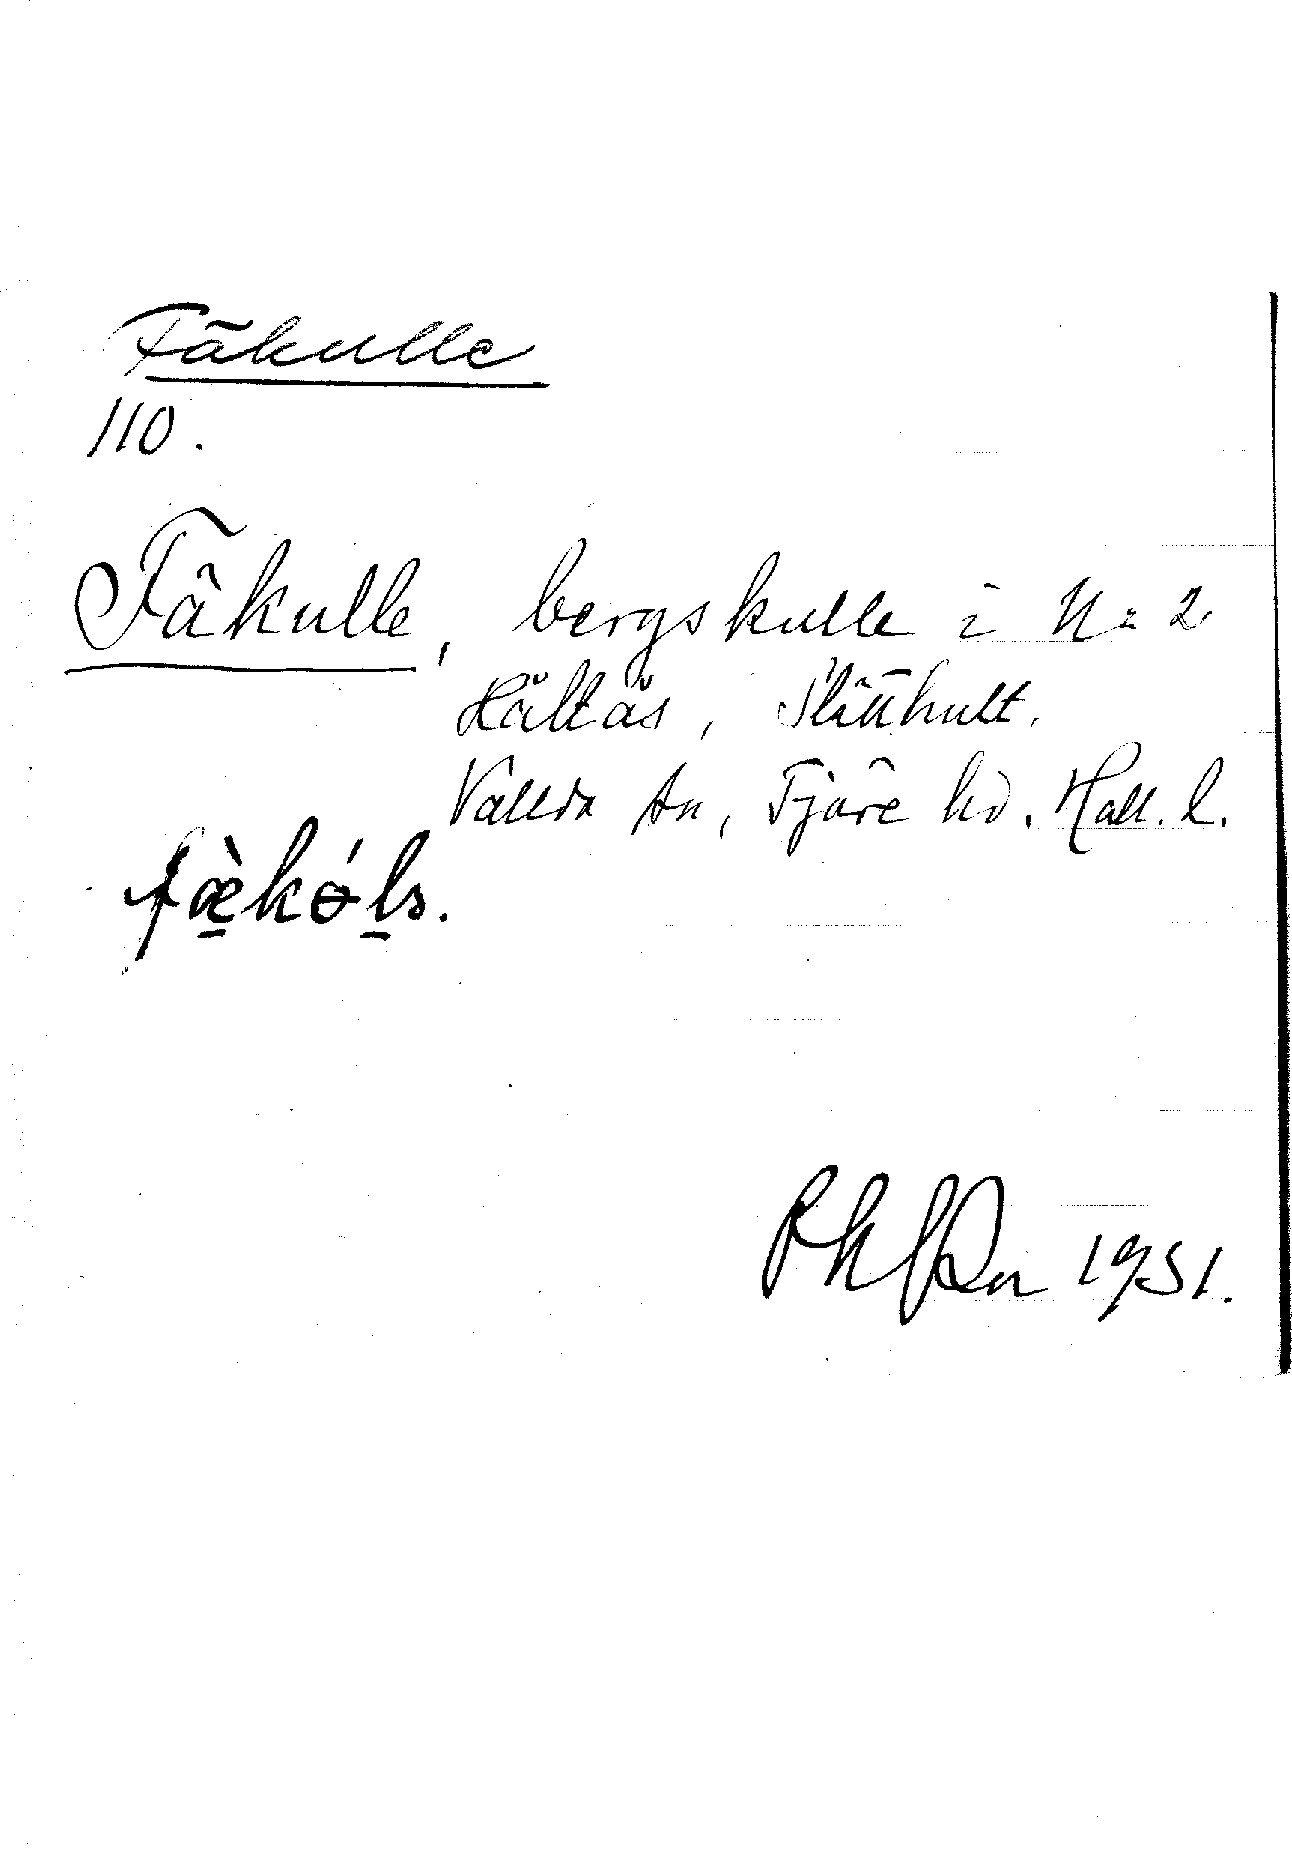 Fäkulle
110.
Fäkulle, bergskulle i N:2
Hältås, Slätthult.
Vallda sn, Fjäre hd. Hall. l.
1951.